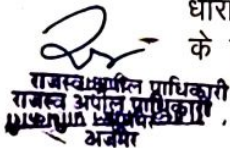 धारा
के
राजस्व अपील प्राधिकारी
राजस्व अपील प्राधिकारी
अजमेर